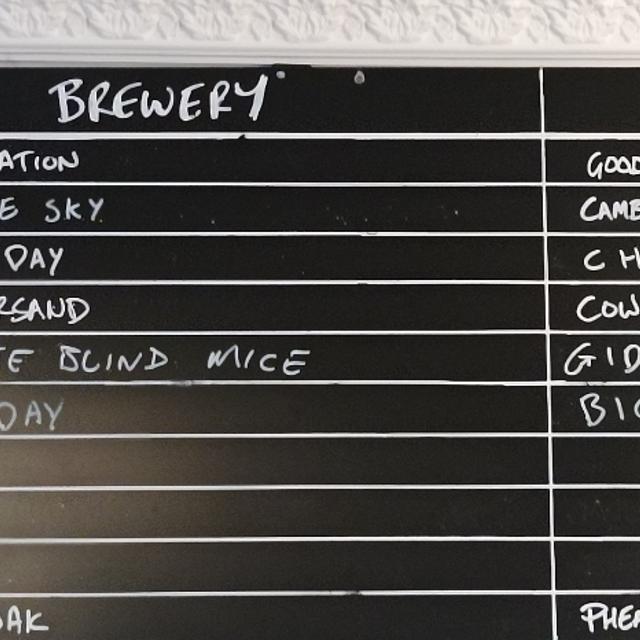 BREWERY
ATION GOOD
E SKY CAMB
DAY CH
RSAND COW
E BLIND MICE GID
DAY BIG
OAK PHE